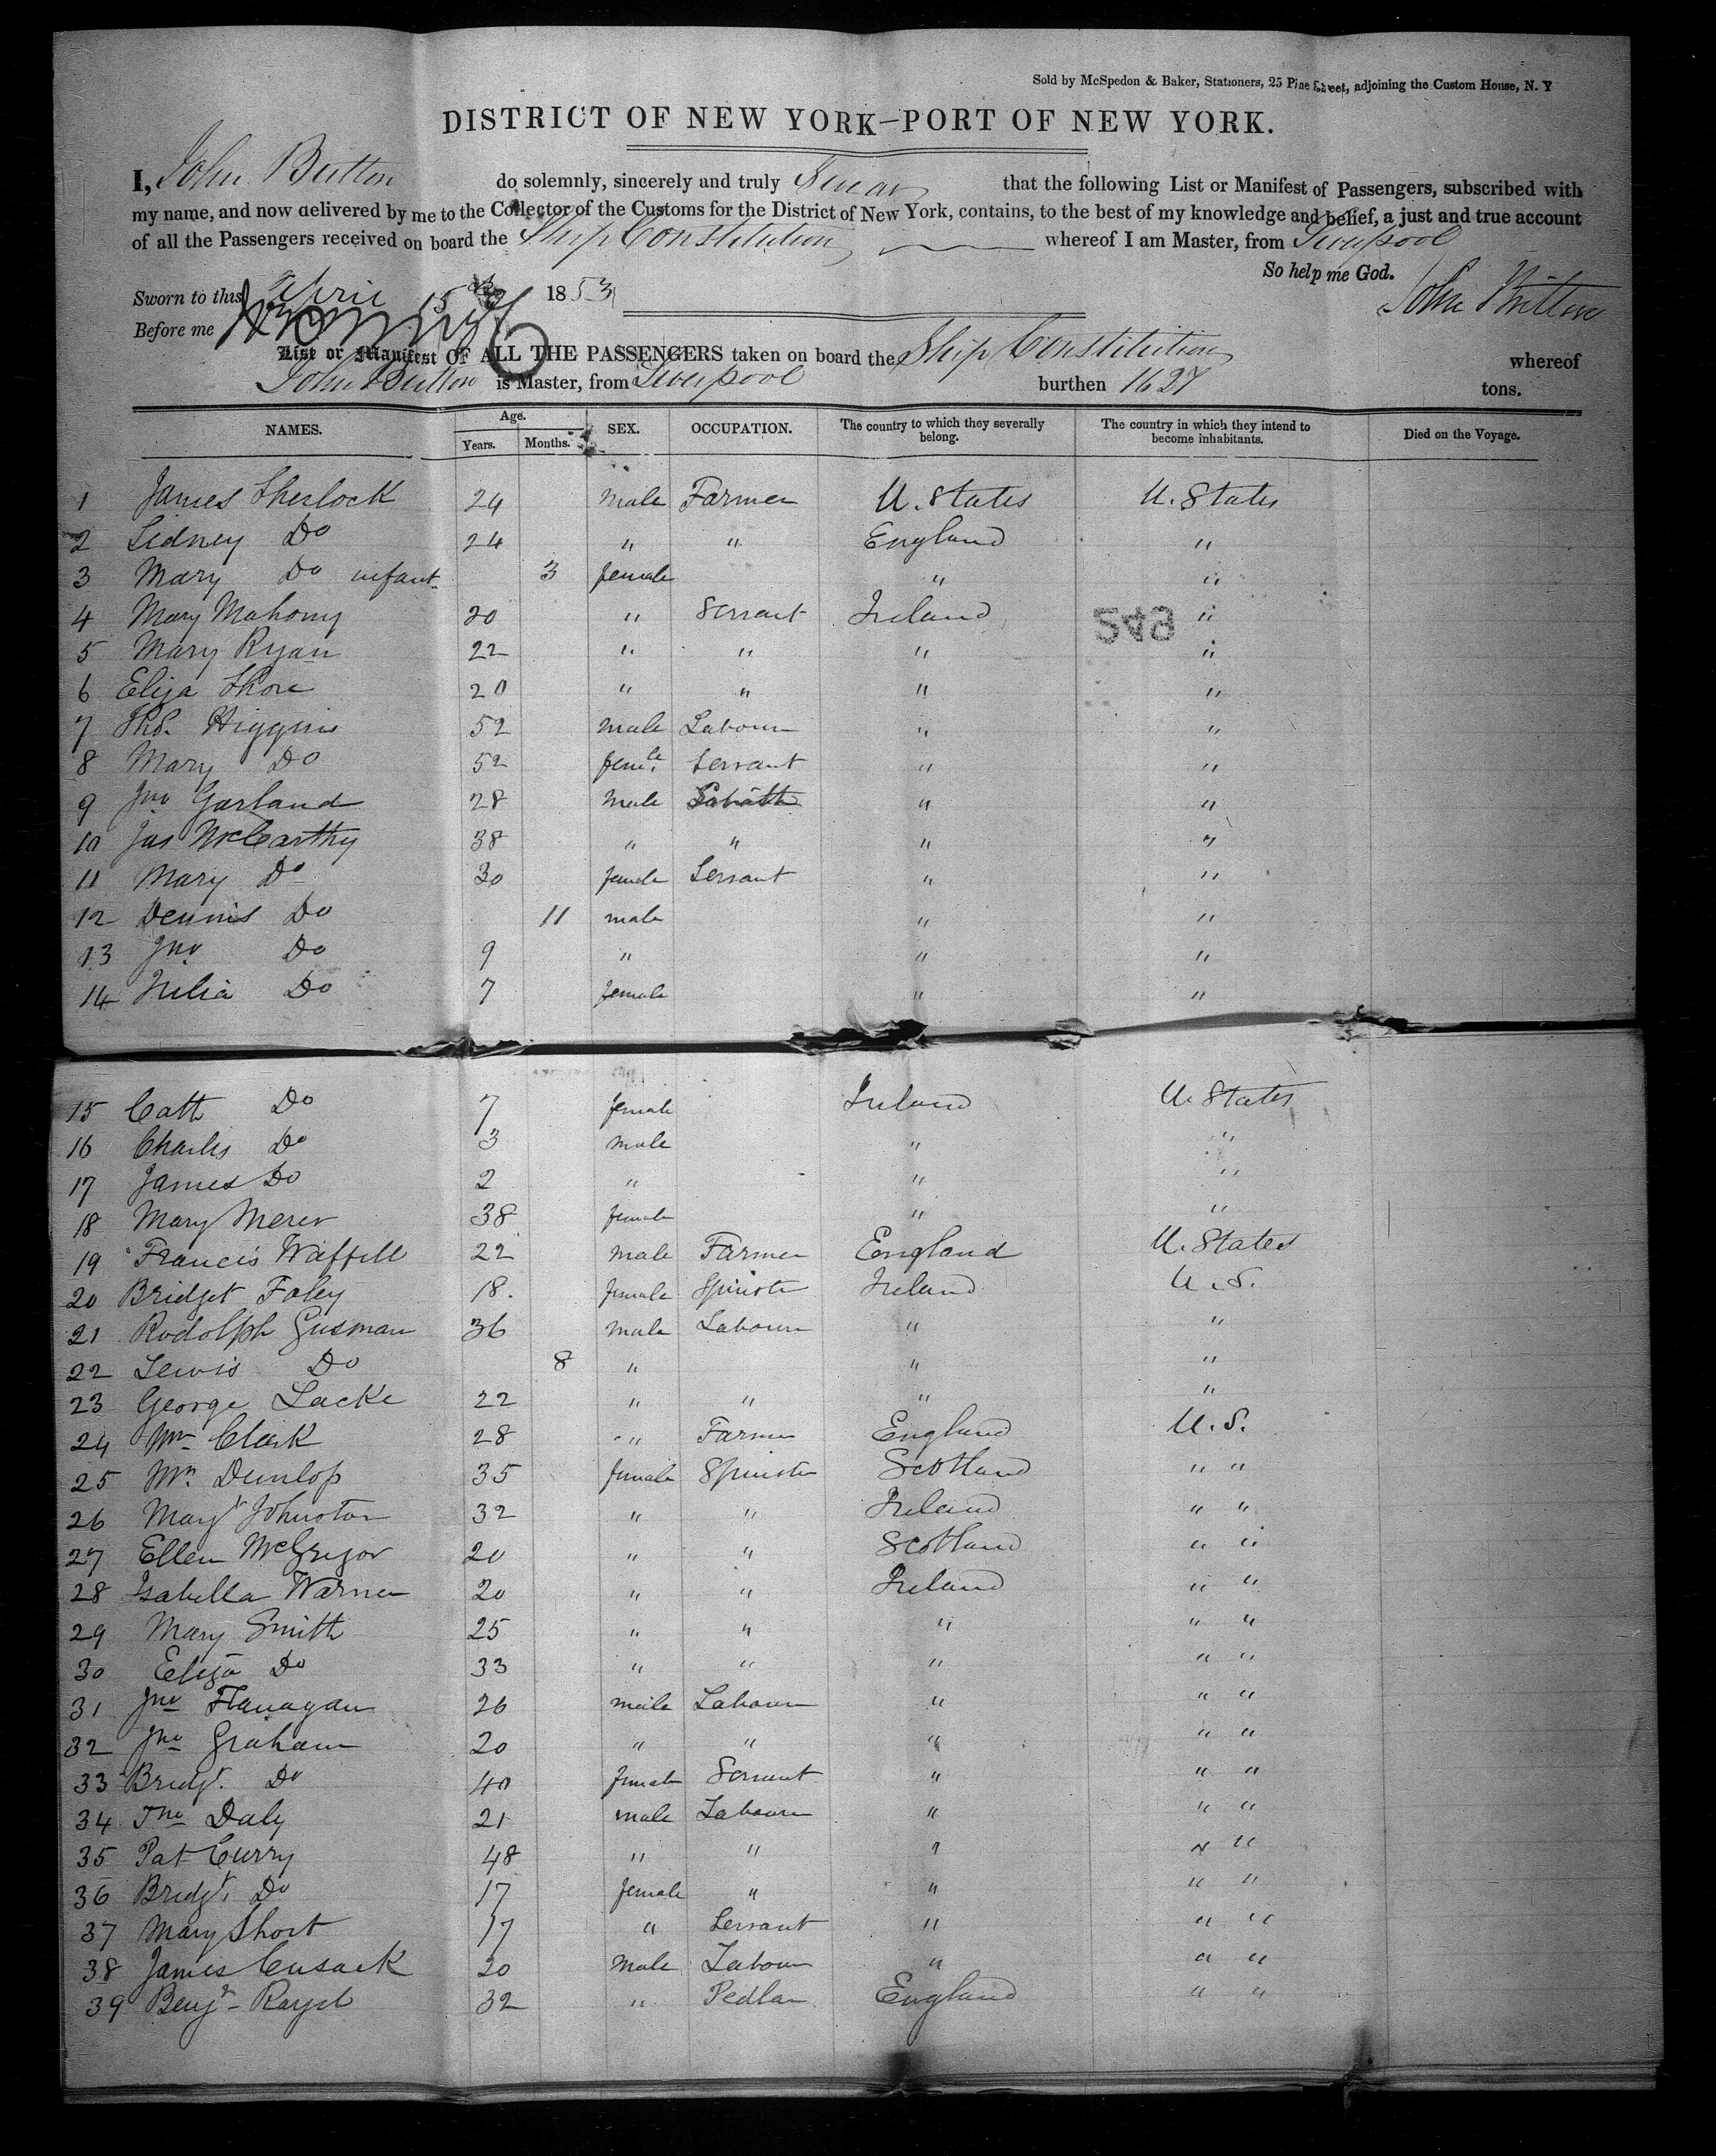 Sold by McSpedon & Baker, Stationers, 25 Pine Street, adjoining the Custom House, N. Y
DISTRICT OF NEW YORK—PORT OF NEW YORK.
I, John Britton do solemnly, sincerely and truly Swear that the following List or Manifest of Passengers, subscribed with
my name, and now delivered by me to the Collector of the Customs for the District of New York, contains, to the best of my knowledge and belief, a just and true account
of all the Passengers received on board the Ship Constitution whereof I am Master, from Liverpool
So help me God.
Sworn to this April 15 1853 John Britton
Before me
List or Manifest OF ALL THE PASSENGERS taken on board the Ship Constitution whereof
John Britton is Master, from Liverpool burthen 1627 tons.
NAMES. Age. Years. Months. SEX. OCCUPATION. The country to which they severally belong. The country in which they intend to become inhabitants. Died on the Voyage.
1 James Sherlock 24 male Farmer U. States U. States
2 Sidney Do 24 " " England "
3 Mary Do infant 3 female " "
4 Mary Mahony 20 " Servant Ireland "
549
5 Mary Ryan 22 " " " "
6 Eliza Shore 20 " " " "
7 Thos. Higgins 52 male Labourer " "
8 Mary Do 52 femle. Servant " "
9 Jno Garland 28 male " "
10 Jas McCarthy 38 " " " "
11 Mary Do 30 female Servant " "
12 Dennis Do 11 male " "
13 Jno Do 9 " " "
14 Julia Do 7 female " "
15 Cath Do 7 female Ireland U. States
16 Charles Do 3 male " "
17 James Do 2 " " "
18 Mary 38 female " "
19 Francis 22 male Farmer England U. States
20 Bridget Foley 18. female Spinster Ireland U. S.
21 Rodolph Gusman 36 male Labourer " "
22 Lewis Do 8 " " "
23 George Lacke 22 " " " "
24 Wm Clark 28 " Farmer England U. S.
25 Dunlop 35 female Spinster Scotland " "
26 Margt Johnston 32 " " Ireland " "
27 Ellen McGregor 20 " " Scotland " "
28 Isabella Warner 20 " " Ireland " "
29 Mary Smith 25 " " " " "
30 Eliza Do 33 " " " " "
31 Jno Flanagan 26 male Labourer " " "
32 Jno Graham 20 " " " " "
33 Bridgt. Do 40 female Servant " " "
34 Jno Daly 21 male Labourer " " "
35 Pat Curry 48 " " " " "
36 Bridgt. Do 17 female " " " "
37 Mary Short 17 " Servant " " "
38 James Cusack 20 male Labour " " "
39 Benjn 32 " Pedlar England " "